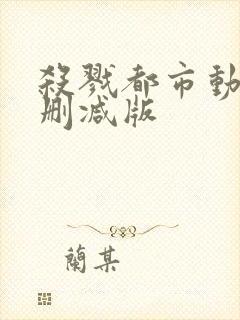 殺戮都市動
刪減版
蘭某